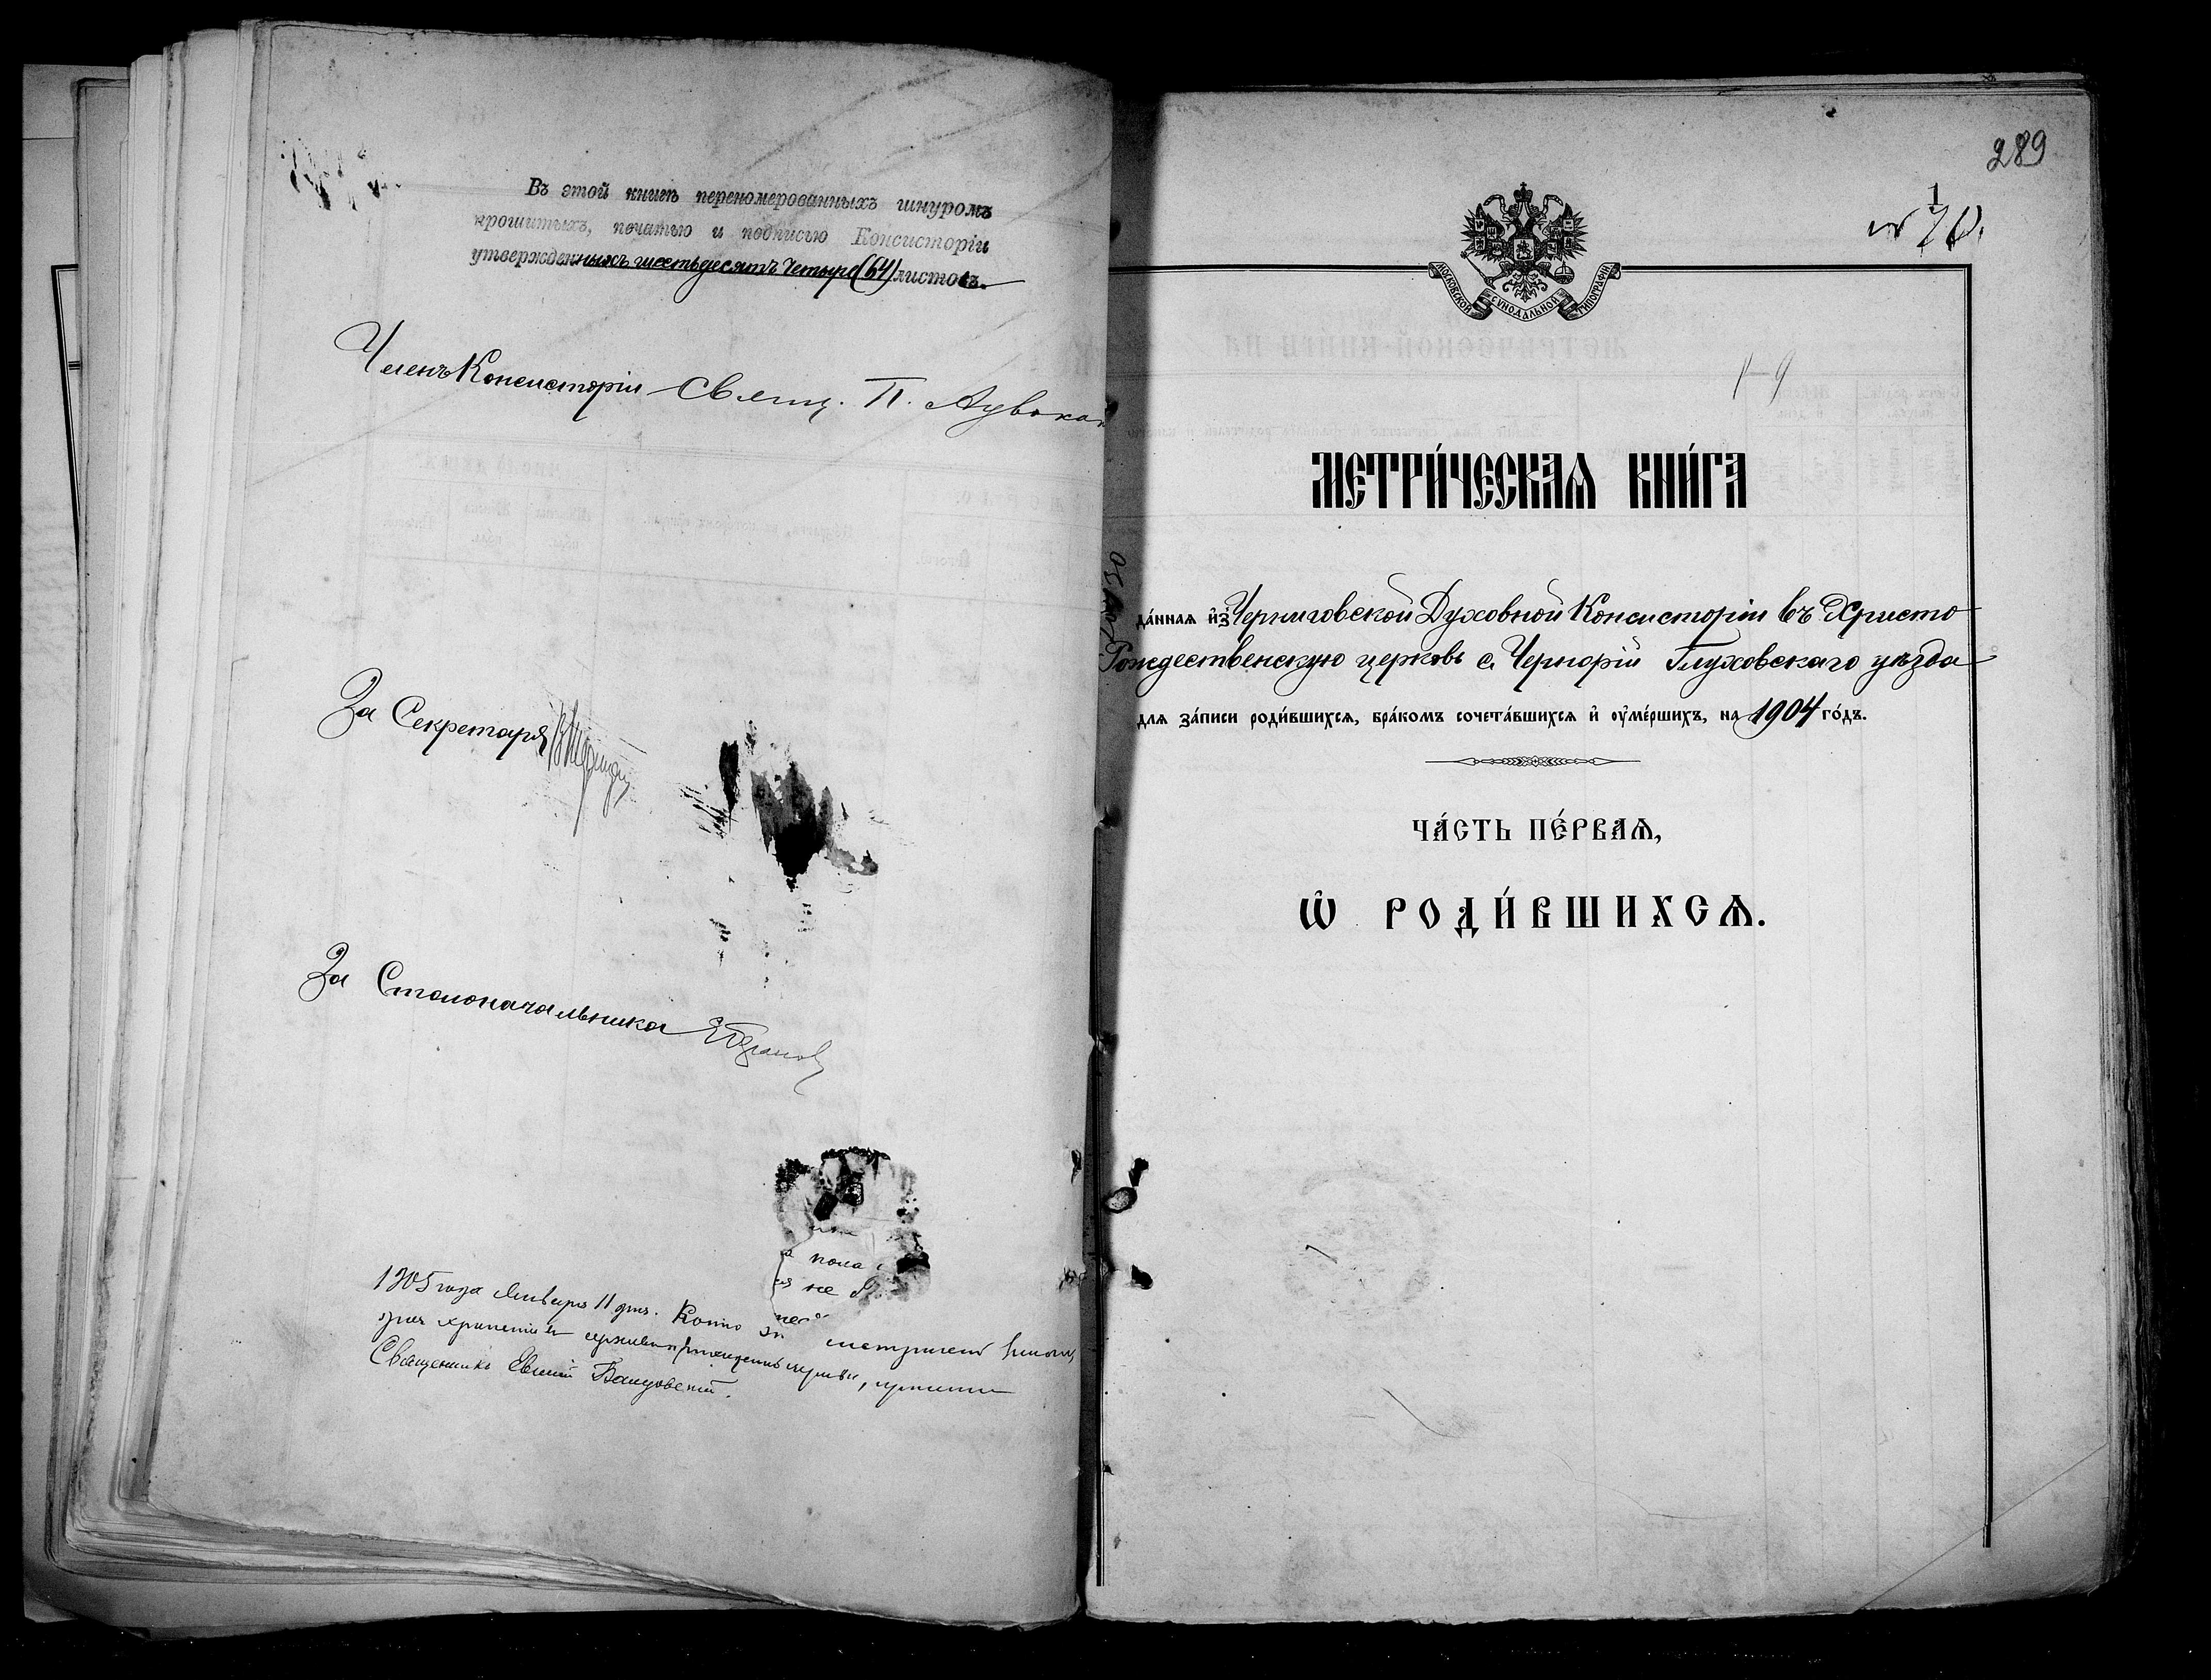 Въ этой книгѣ переномерованныхъ шнуромъ
прошитыхъ, печатью и подписью Консисторіи
утвержденныхъ шестьдесятъ четыре (64) листовъ.
Членъ Консисторіи Свящ. П.
За Секретаря
За Столоначальника
пола
не
1905 года Января 11 дня. Копію метрической
Священникъ
289
1
№ 70.
МОСКОВСКОЙ СѴНОДАЛЬНОЙ ТИПОГРАФІИ
1-9
МЕТРИ́ЧЕСКАѦ КНИ́ГА
да́ннаѧ и҆з̾ Черниговской Духовной Консисторіи въ Христо
Рождественскую церковь с. Черторій Глуховскаго уѣзда
для за́писи роди́вшихсѧ, бра́комъ сочета́вшихсѧ и҆ ᲂу҆ме́ршихъ, на 1904 го́дъ.
ЧА́СТЬ ПЕ́РВАѦ,
Ѡ҆ РОДИ́ВШИХСѦ.